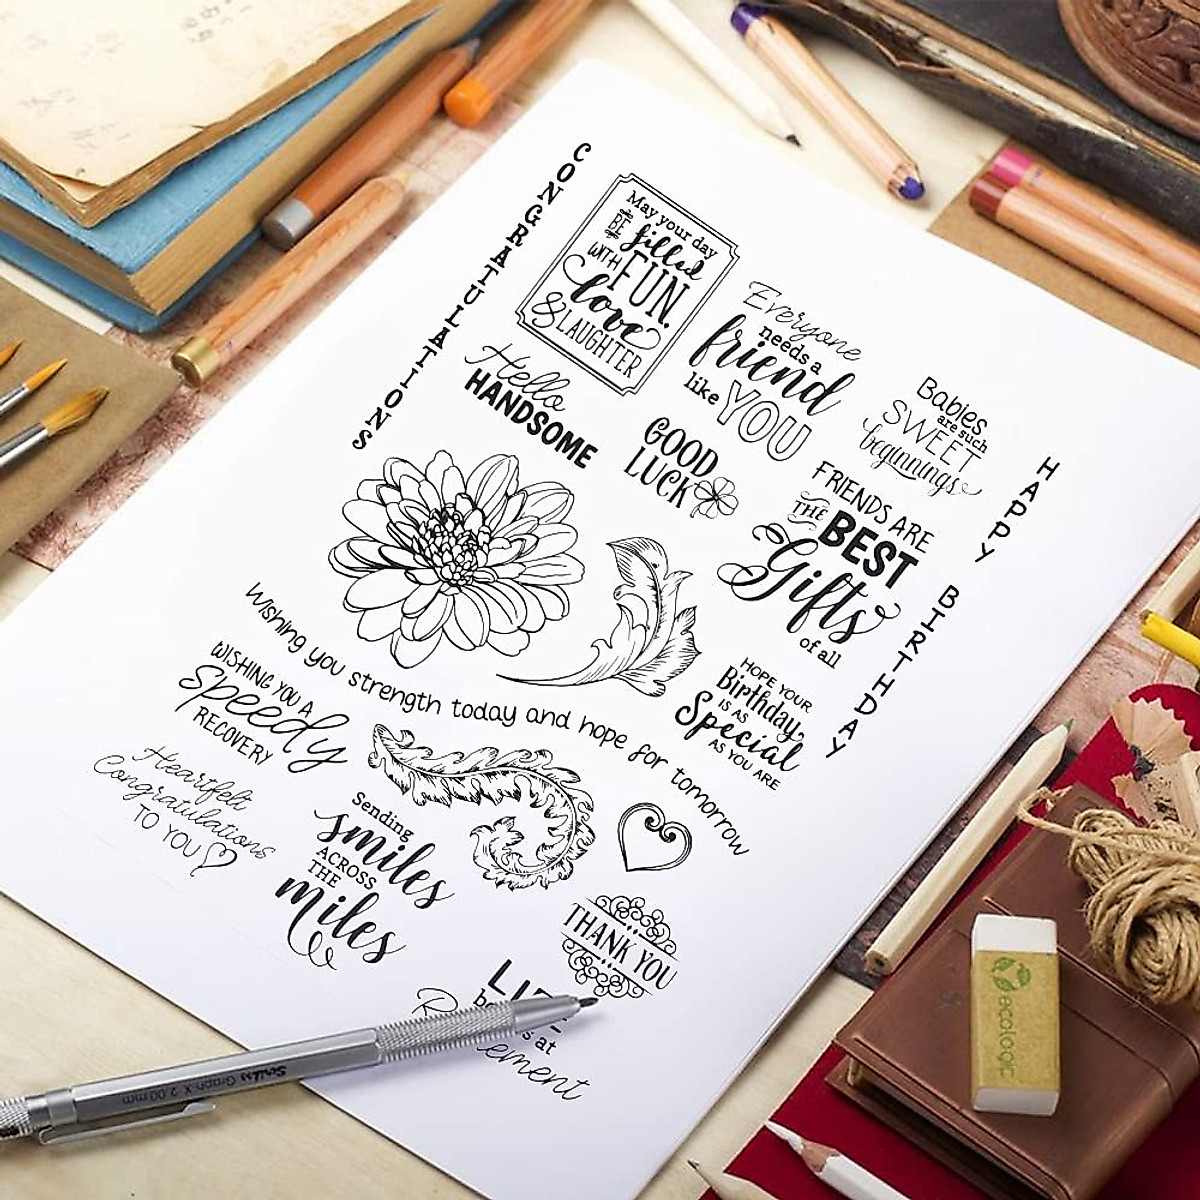 CONGRATULATIONS
May your day
BE filled
WITH FUN,
love
& LAUGHTER
Everyone
needs a
friend
like YOU
Babies
are such
SWEET
beginnings
Hello
HANDSOME
GOOD
LUCK
FRIENDS ARE
THE BEST
Gifts
of all
HAPPY BIRTHDAY
Wishing you strength today and hope for tomorrow
HOPE YOUR
Birthday
IS AS
Special
AS YOU ARE
WISHING YOU A
Speedy
RECOVERY
Heartfelt
Congratulations
TO YOU
Sending
smiles
ACROSS
THE
miles
THANK YOU
Scrikss Graph-X 2.00mm
ecologic